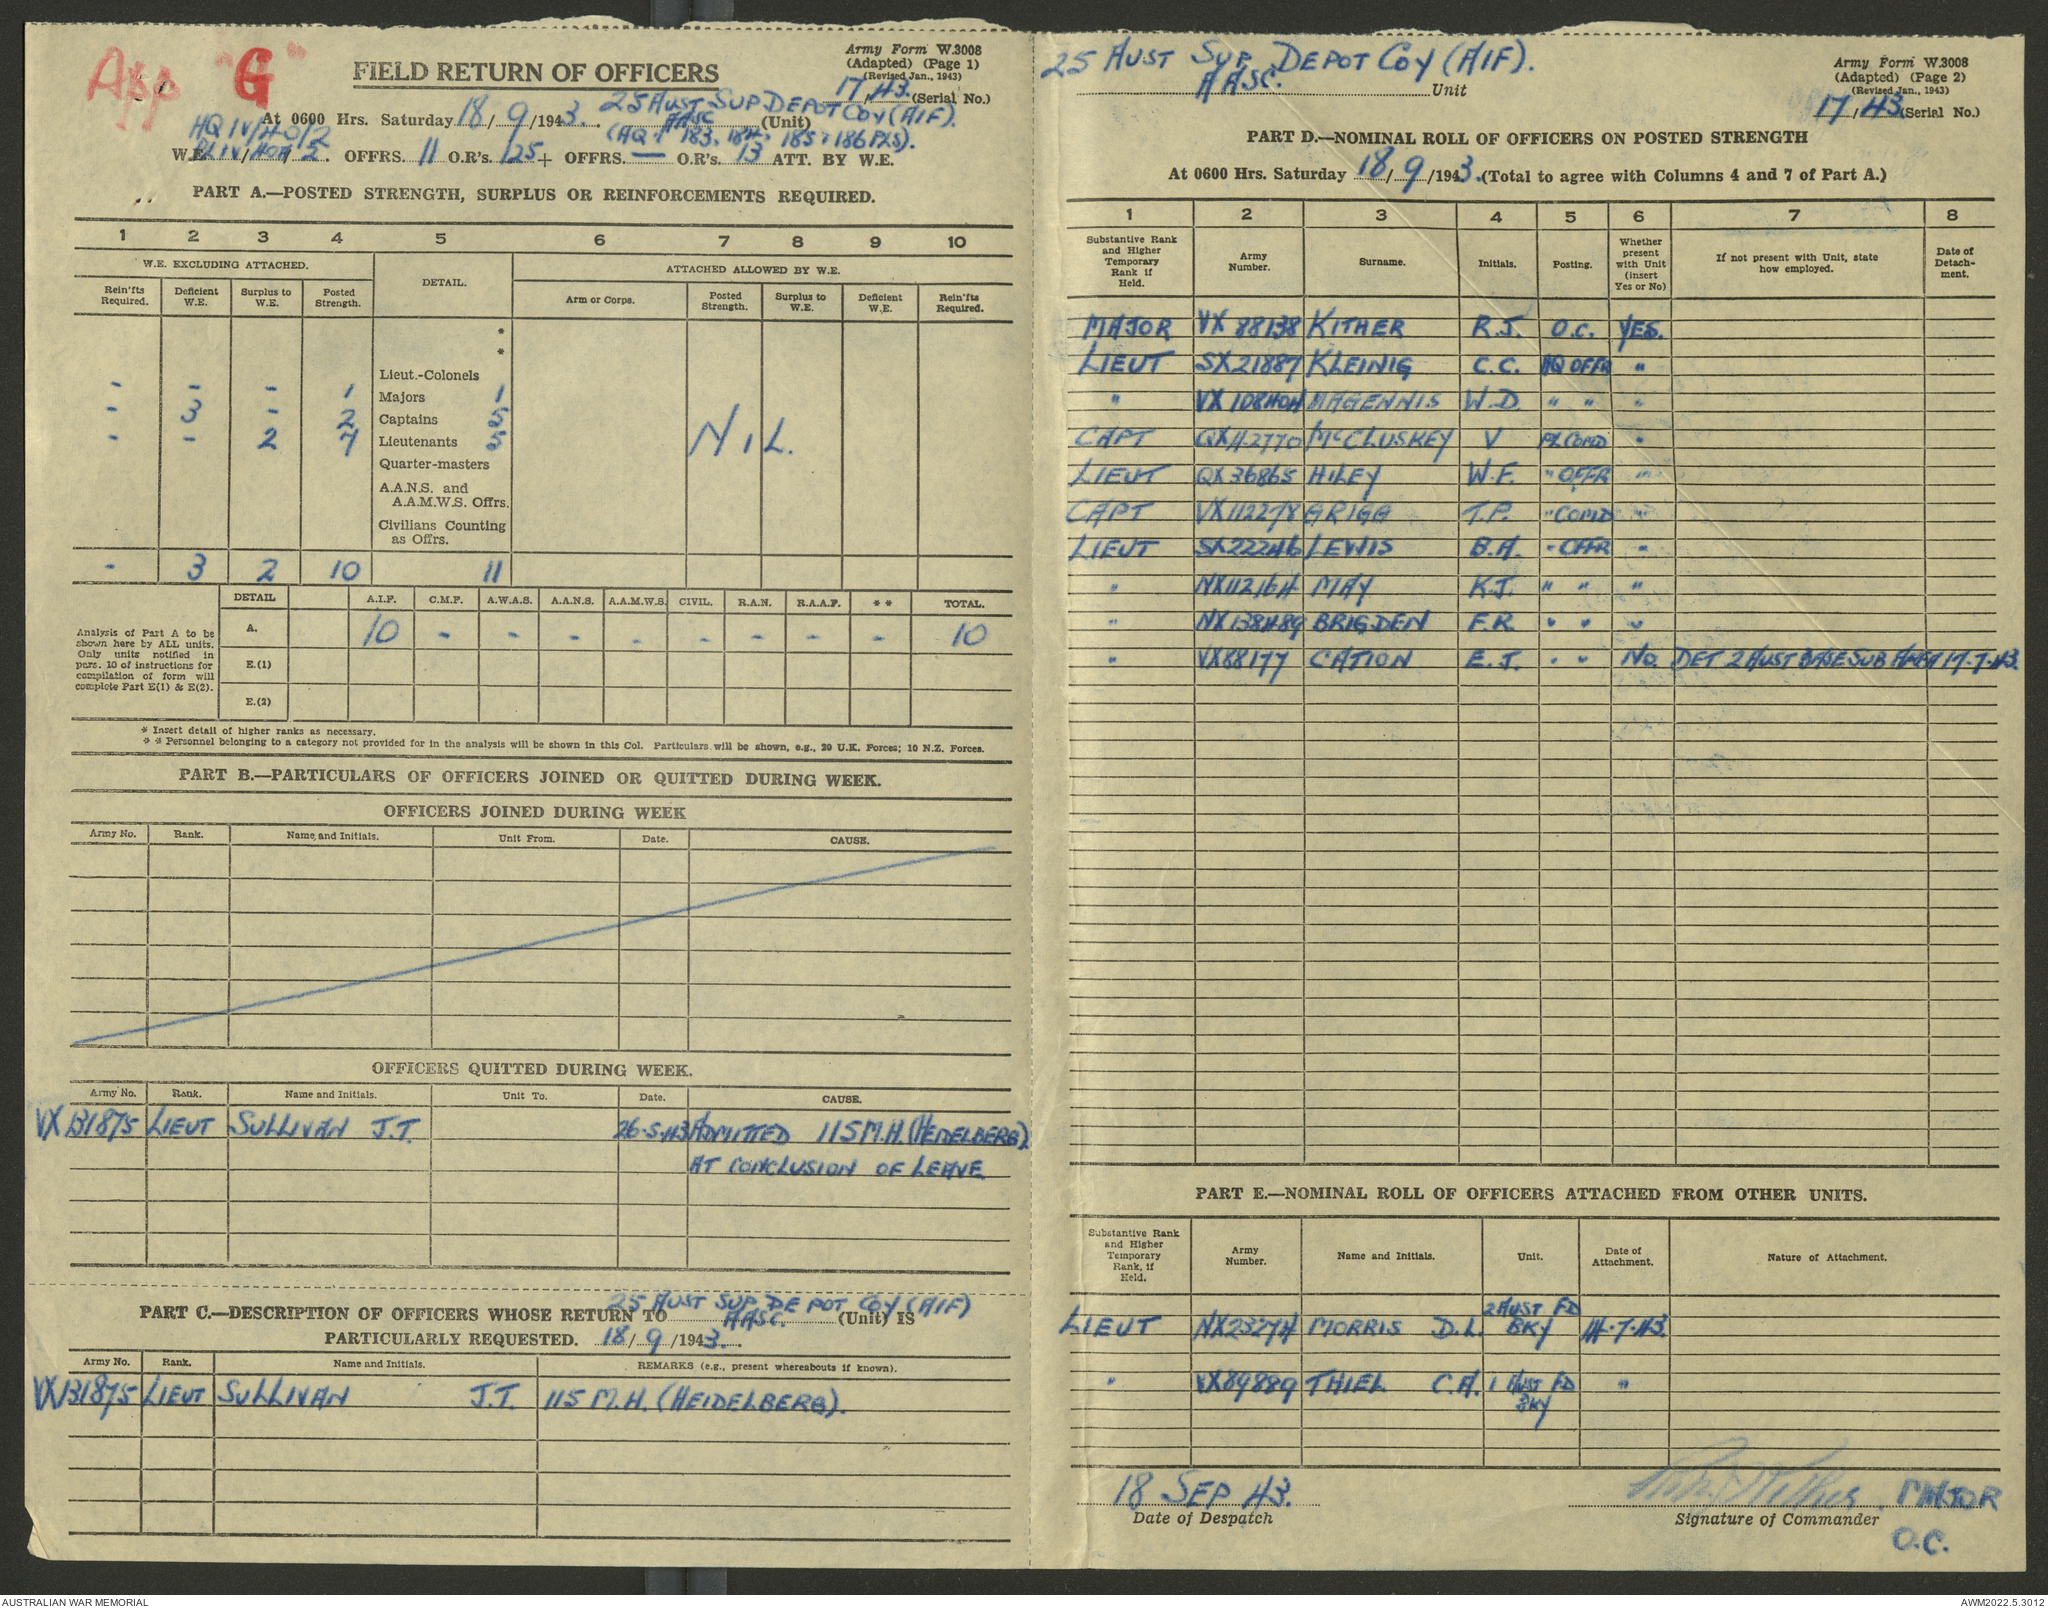 App "G"
FIELD RETURN OF OFFICERS
Army Form W.3008
(Adapted) (Page 1)
(Revised Jan., 1943)
17/43. (Serial No.)
At 0600 Hrs. Saturday 18/9/1943. 25 AUST SUP DEPOT COY (AIF). AASC (Unit)
(HQ + 183, 184, 185, 186 PLS).
HQ IV/40/2
W.E. PL IV/404/2. OFFRS. 11 O.R's. 125 + OFFRS. — O.R's. 13 ATT. BY W.E.
PART A.—POSTED STRENGTH, SURPLUS OR REINFORCEMENTS REQUIRED.
1 2 3 4 5 6 7 8 9 10
W.E. EXCLUDING ATTACHED. DETAIL. ATTACHED ALLOWED BY W.E.
Rein'fts Required. Deficient W.E. Surplus to W.E. Posted Strength. Arm or Corps. Posted Strength. Surplus to W.E. Deficient W.E. Rein'fts Required.
*
*
Lieut.-Colonels
- - - 1 Majors 1
- 3 - 2 Captains 5
- - 2 7 Lieutenants 5 NIL.
Quarter-masters
A.A.N.S. and
A.A.M.W.S. Offrs.
Civilians Counting
as Offrs.
- 3 2 10 11
DETAIL A.I.F. C.M.F. A.W.A.S. A.A.N.S. A.A.M.W.S. CIVIL. R.A.N. R.A.A.F. ** TOTAL.
A. 10 - - - - - - - - 10
E.(1)
E.(2)
Analysis of Part A to be
shown here by ALL units.
Only units notified in
para. 10 of instructions for
compilation of form will
complete Part E(1) & E(2).
* Insert detail of higher ranks as necessary.
** Personnel belonging to a category not provided for in the analysis will be shown in this Col. Particulars will be shown, e.g., 20 U.K. Forces; 10 N.Z. Forces.
PART B.—PARTICULARS OF OFFICERS JOINED OR QUITTED DURING WEEK.
OFFICERS JOINED DURING WEEK
Army No. Rank. Name and Initials. Unit From. Date. CAUSE.
OFFICERS QUITTED DURING WEEK.
Army No. Rank. Name and Initials. Unit To. Date. CAUSE.
VX131875 LIEUT SULLIVAN J.T. 26.5.43 ADMITTED 115 M.H. (HEIDELBERG)
AT CONCLUSION OF LEAVE
PART C.—DESCRIPTION OF OFFICERS WHOSE RETURN TO 25 AUST SUP DEPOT COY (AIF) AASC. (Unit) IS
PARTICULARLY REQUESTED. 18/9/1943.
Army No. Rank. Name and Initials. REMARKS (e.g., present whereabouts if known).
VX131875 LIEUT SULLIVAN J.T. 115 M.H. (HEIDELBERG).
25 AUST SUP DEPOT COY (AIF).
AASC. Unit
Army Form W.3008
(Adapted) (Page 2)
(Revised Jan., 1943)
17/43 (Serial No.)
PART D.—NOMINAL ROLL OF OFFICERS ON POSTED STRENGTH
At 0600 Hrs. Saturday 18/9/1943. (Total to agree with Columns 4 and 7 of Part A.)
1 2 3 4 5 6 7 8
Substantive Rank and Higher Temporary Rank if Held. Army Number. Surname. Initials. Posting. Whether present with Unit (insert Yes or No) If not present with Unit, state how employed. Date of Detachment.
MAJOR VX 88138 KITHER R.J. O.C. YES.
LIEUT SX21887 KLEINIG C.C. HQ OFFR "
" VX108404 MAGENNIS W.D. " " "
CAPT QX42770 McCLUSKEY V PL COMD "
LIEUT QX36865 HILEY W.F. " OFFR "
CAPT VX112278 GRIGG T.P. " COMD "
LIEUT SX22246 LEWIS B.A. " OFFR "
" NX112164 MAY K.J. " " "
" NX138489 BRIGDEN F.R. " " "
" VX88177 CATION E.J. " " No. DET 2 AUST BASE SUB AREA 17.7.43.
PART E.—NOMINAL ROLL OF OFFICERS ATTACHED FROM OTHER UNITS.
Substantive Rank and Higher Temporary Rank, if Held. Army Number. Name and Initials. Unit. Date of Attachment. Nature of Attachment.
LIEUT NX23274 MORRIS D.L. 2 AUST FD BKY 14.7.43.
" VX89889 THIEL C.A. 1 AUST FD BKY "
18 SEP 43.
Date of Despatch
MAJOR
Signature of Commander
O.C.
AUSTRALIAN WAR MEMORIAL
AWM2022.5.3012